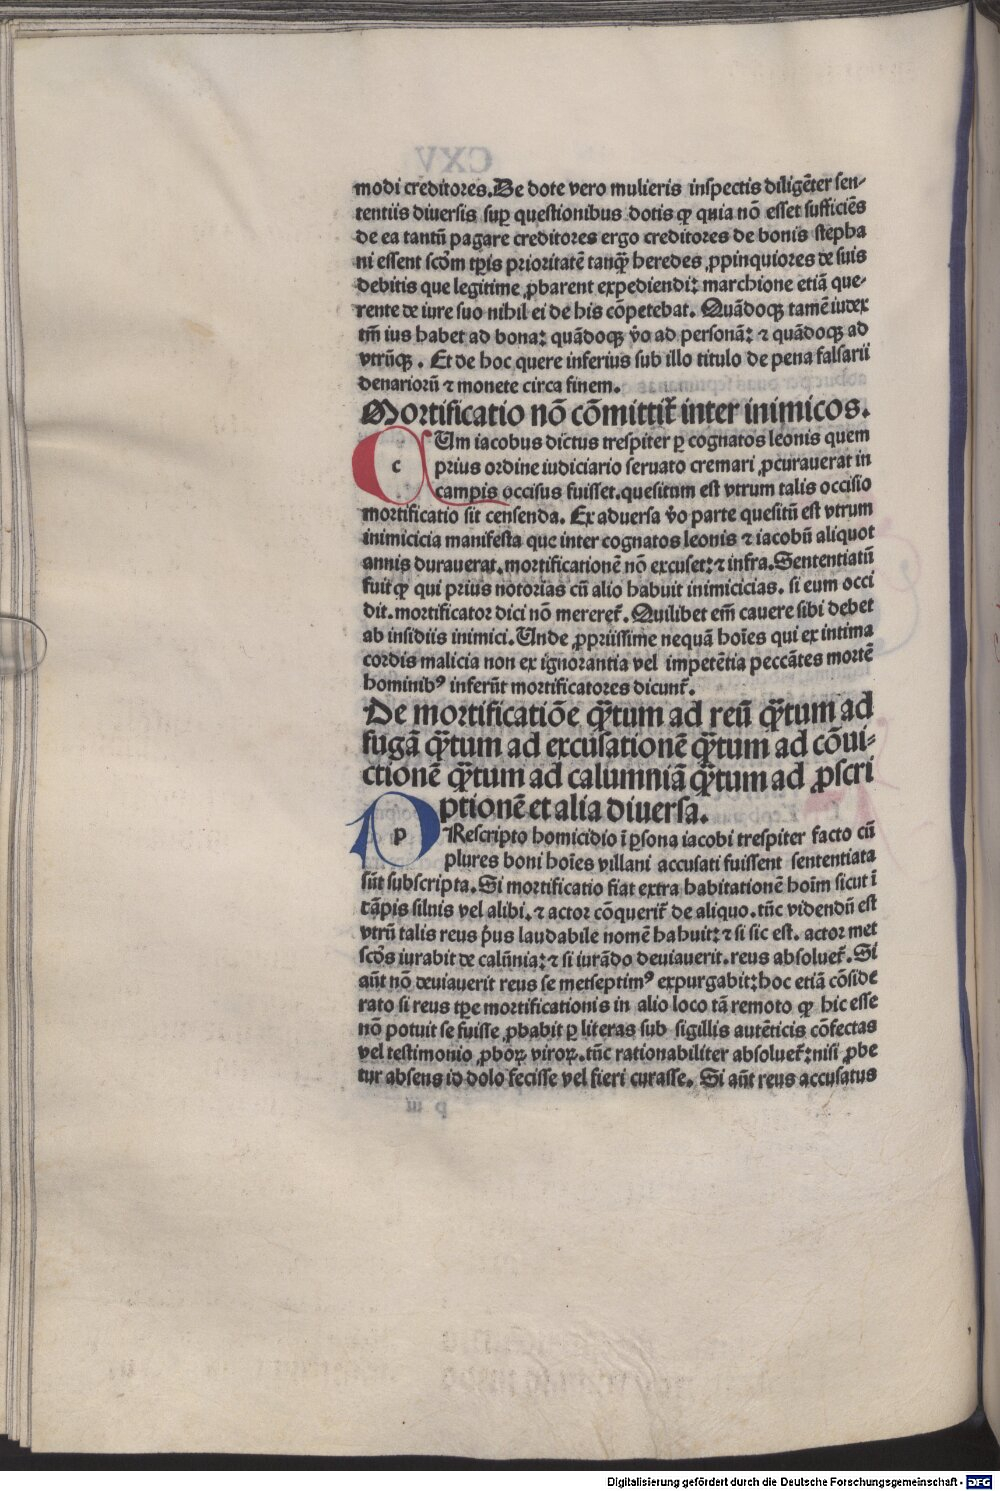 modi creditores. De dote vero mulieris inspectis diligēter sen-
tentiis diversis suꝑ questionibus dotis ꝙ quia nō esset sufficiēs
de ea tantū pagare creditores ergo creditores de bonis stepha
ni essent scďm tꝑis prioritatē tanꝙ̄ heredes ꝓpinquiores de suis
debitis que legitime ꝓbarent expediendi: marchione etiā que-
rente de iure suo nihil ei de his cōpetebat. Quādoqꝫ tamē iudex
tm̄ ius habet ad bona: quādoqꝫ v̊o ad personā: ⁊ quādoqꝫ ad
vtrūqꝫ. Et de hoc quere inferius sub illo titulo de pena falsarii
denariorū ⁊ monete circa finem.
Mortificatio nō cōmittit̄ inter inimicos.
c
Um iacobus dictus trespiter ꝑ cognatos leonis quem
prius ordine iudiciario seruato cremari ꝓcurauerat in
campis occisus fuisset. quesitum est vtrum talis occisio
mortificatio sit censenda. Ex aduersa v̊o parte quesitū est vtrum
inimicicia manifesta que inter cognatos leonis ⁊ iacobū aliquot
annis durauerat. mortificationē nō excuset: ⁊ infra. Sententiatū
fuit ꝙ qui prius notorias cū alio habuit inimicicias. si eum occi
dit. mortificator dici nō mereret̄. Quilibet em̄ cauere sibi debet
ab insidiis inimici. Unde ꝓpriissime nequā hoīes qui ex intima
cordis malicia non ex ignorantia vel impetētia peccātes mortē
hominibꝰ inferūt mortificatores dicunt̄.
De mortificatiōe ꝙ̄tum ad reū ꝙ̄tum ad
fugā ꝙ̄tum ad excusationē ꝙ̄tum ad cōui-
ctionē ꝙ̄tum ad calumniā ꝙ̄tum ad ꝓscri
ptionē et alia diuersa.
p
REscripto homicidio ī ꝑsona iacobi trespiter facto cū
plures boni hoīes villani accusati fuissent sententiata
sūt subscripta. Si mortificatio fiat extra habitationē hoīm sicut ī
cāpis siluis vel alibi. ⁊ actor cōquerit̄ de aliquo. tūc videndū est
vtrū talis reus p̄us laudabile nomē habuit: ⁊ si sic est. actor met
scďs iurabit de calūnia: ⁊ si iurādo deuiauerit. reus absoluet̄. Si
aūt nō deuiauerit reus se metseptimꝰ expurgabit: hoc etiā cōside
rato si reus tꝑe mortificationis in alio loco tā remoto ꝙ hic esse
nō potuit se fuisse ꝓbabit ꝑ literas sub sigillis autēticis cōfectas
vel testimonio ꝓboꝝ viroꝝ. tūc rationabiliter absoluet̄: nisi ꝓbe
tur absens id dolo fecisse vel fieri curasse. Si aūt reus accusatus
Digitalisierung gefördert durch die Deutsche Forschungsgemeinschaft - DFG